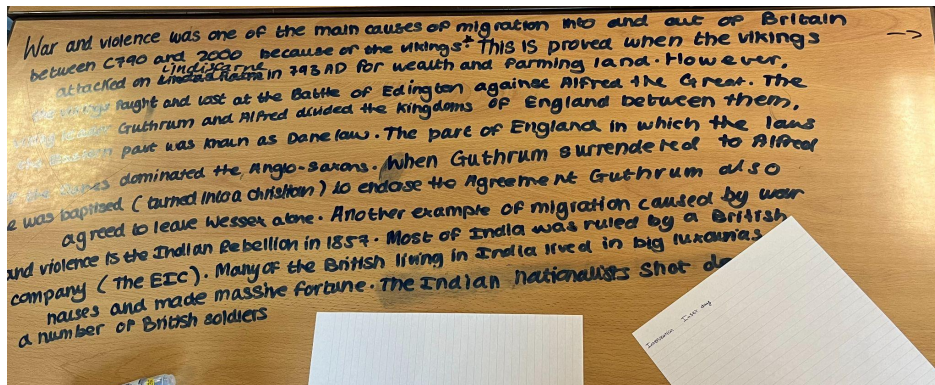 War and violence was one of the main causes of migration into and out of Britain
between C790 and 2000 because of the vikings + This is proved when the vikings
Lindisfarne
attacked on in 793 AD for wealth and farming land. However,
the vikings fought and lost at the Battle of Edington against Alfred the Great. The
viking leader Guthrum and Alfred divided the kingdoms of England between them,
the part was known as Danelaws. The part of England in which the laws
of the Danes dominated the Anglo-saxons. When Guthrum surrendered to Alfred
e was baptised (turned into a christian) to endose the Agreement Guthrum also
agreed to leave Wessex alone. Another example of migration caused by war
and violence is the Indian Rebellion in 1857. Most of India was ruled by a British
company (The EIC). Many of the British living in India lived in big luxurious
and made massive fortune. The Indian nationalists shot
a number of British soldiers
Inset day